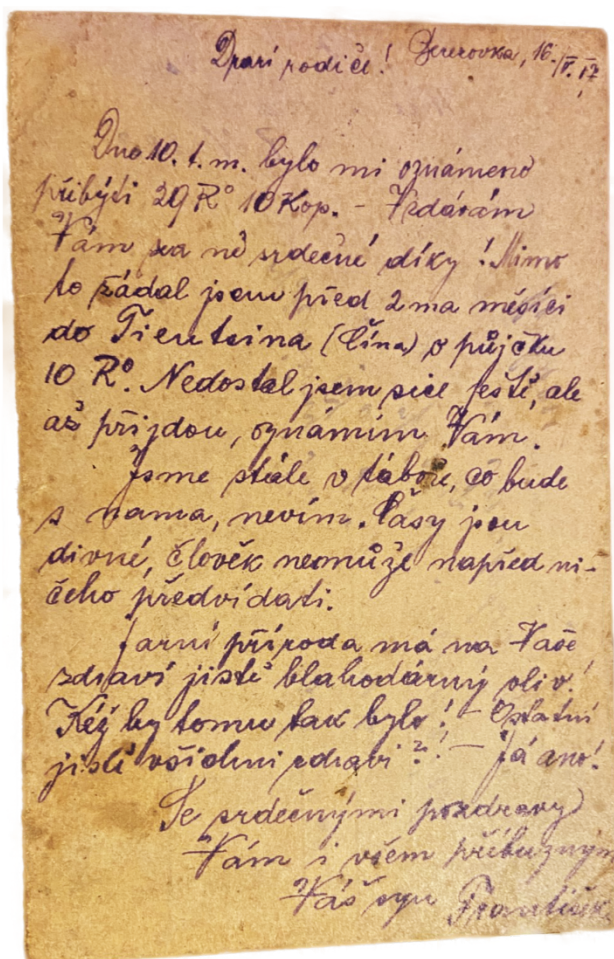 Drazí rodiče! Berezovka, 16./V. 17.
Dne 10. t. m. bylo mi oznámeno
přibytí 29 R° 10 Kop. - Vzdávám
Vám za ně srdečné díky! Mimo
to žádal jsem před 2ma měsíci
do Tientsina (Čína) o půjčku
10 R°. Nedostal jsem sice ještě, ale
až přijdou, oznámím Vám.
Jsme stále v táboře, co bude
s nama, nevím. Časy jsou
divné, člověk nemůže napřed ni-
čeho předvídati.
Jarní příroda má na Vaše
zdraví jistě blahodárný vliv!
Kéž by tomu tak bylo! - Ostatní
jistě všichni zdraví?! - Já ano!
Se srdečnými pozdravy
Vám i všem příbuzným
Váš syn František